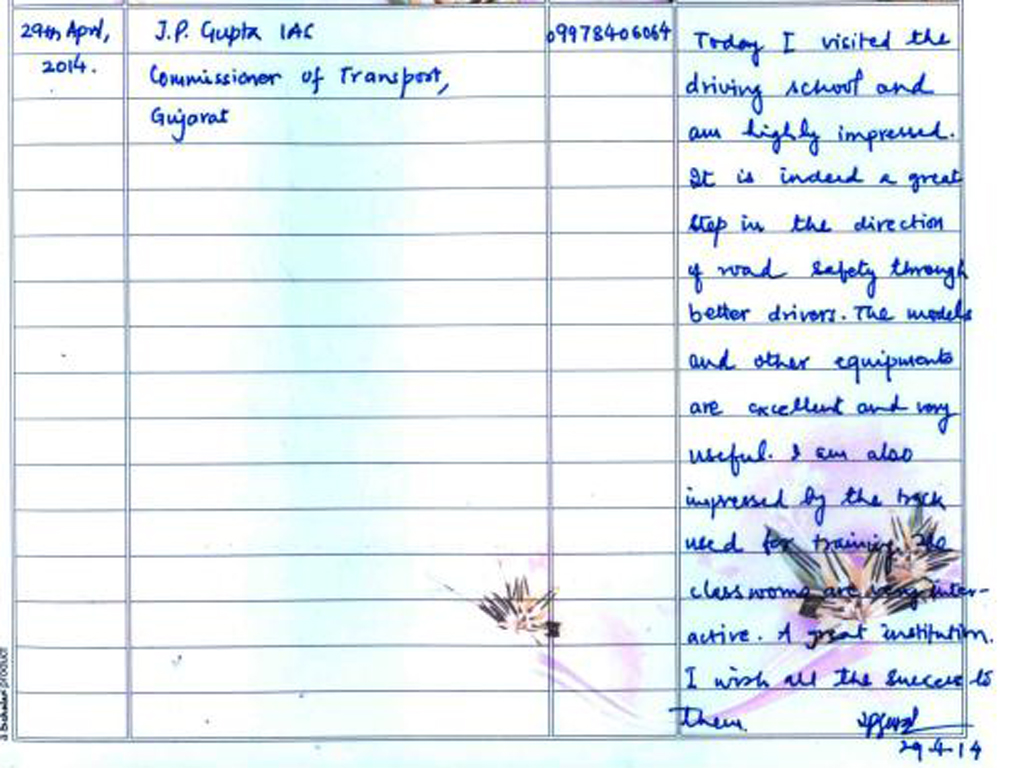 29th April,
2014.
J.P. Gupta IAS
Commissioner of Transport,
Gujarat
09978406064
Today I visited the
driving school and
am highly impressed.
It is indeed a great
step in the direction
of road safety through
better drivers. The models
and other equipments
are excellent and very
useful. I am also
impressed by the track
used for training. The
classrooms are very inter-
active. A great institution.
I wish all the success to
them.
29-4-14
Scholar PRODUCT